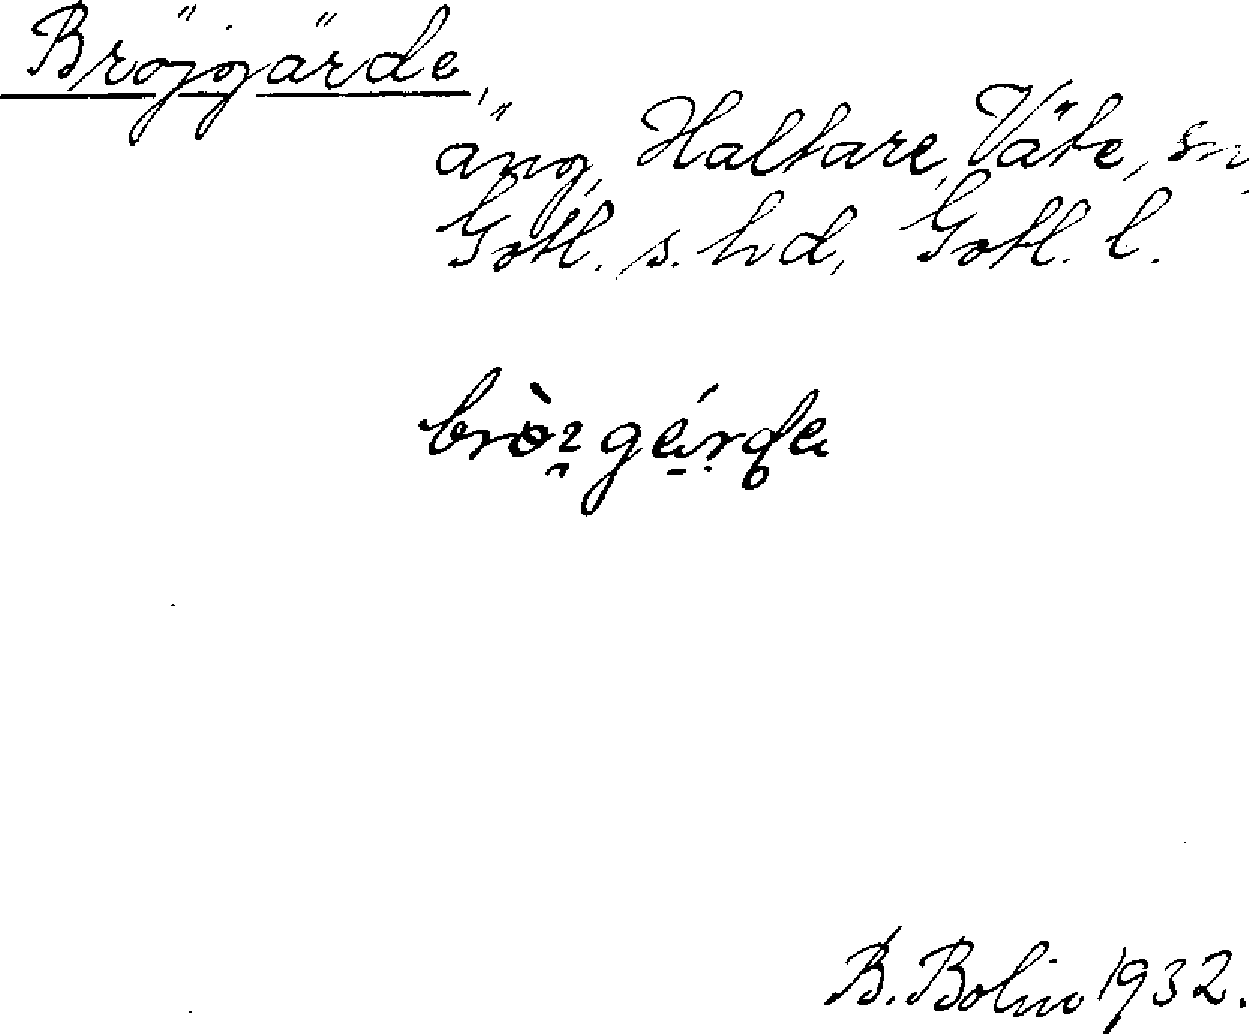 Bröjgärde,
äng, Haltare, Väte, sn,
Gotl. s. hd, Gotl. l.
B. Bolin 1932.